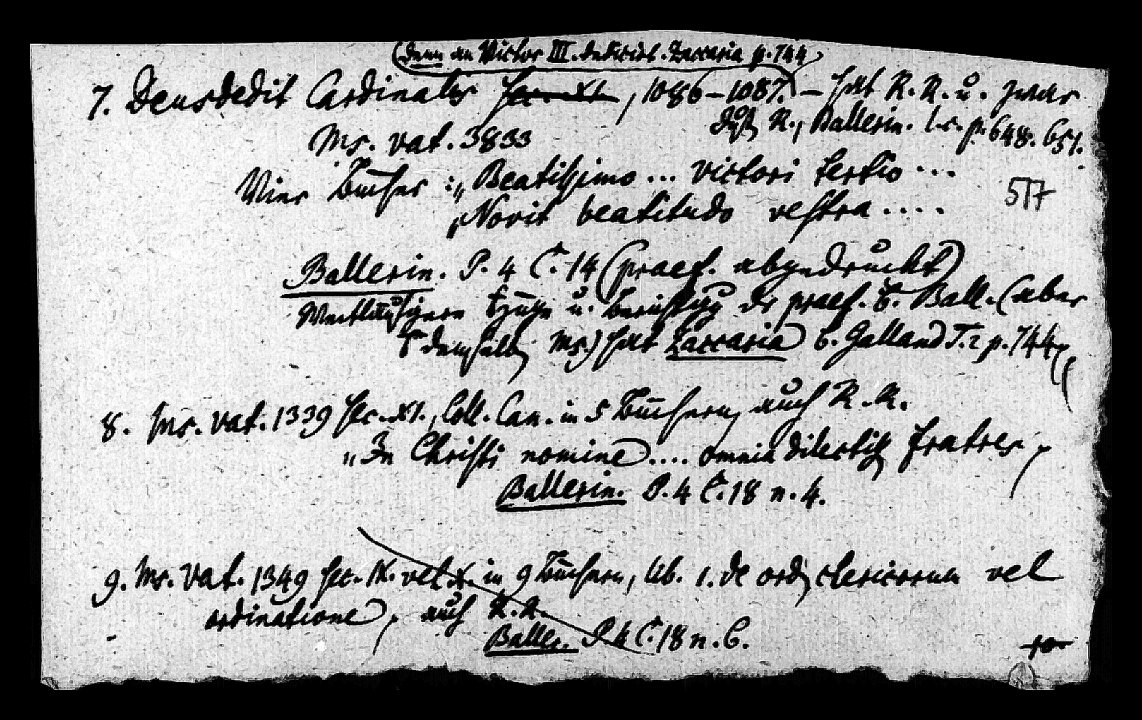 (denn an Victor III. dedicirt. Zaccaria p. 744)
7. Deusdedit Cardinalis sec. XI., 1086–1087. – hat R. R. u. zwar
Ms. vat. 3833 R., Ballerin. l. c. p. 648. 651.
Vier Bücher: „Beatissimo ... victori tertio ...
„Novit beatitudo vestra ....
517
Ballerin. P. 4 C. 14 (praef. abgedruckt)
Weitläufigere u. der praef. b. Ball. (aber
Ms.) hat Zaccaria b. Galland T. 2 p. 744
8. Ms. vat. 1339 sec. XI., Coll. Can. in 5 Büchern, auch R. R.
„In Christi nomine .... omnia fratres,
Ballerin. P. 4 C. 18 n. 4.
9. Ms. Vat. 1349 sec. IX. vel X. in 9 Büchern, lib. 1. de clericorum vel
ordinatione, auch R. R.
Baller. P. 4 C. 18 n. 6.
10